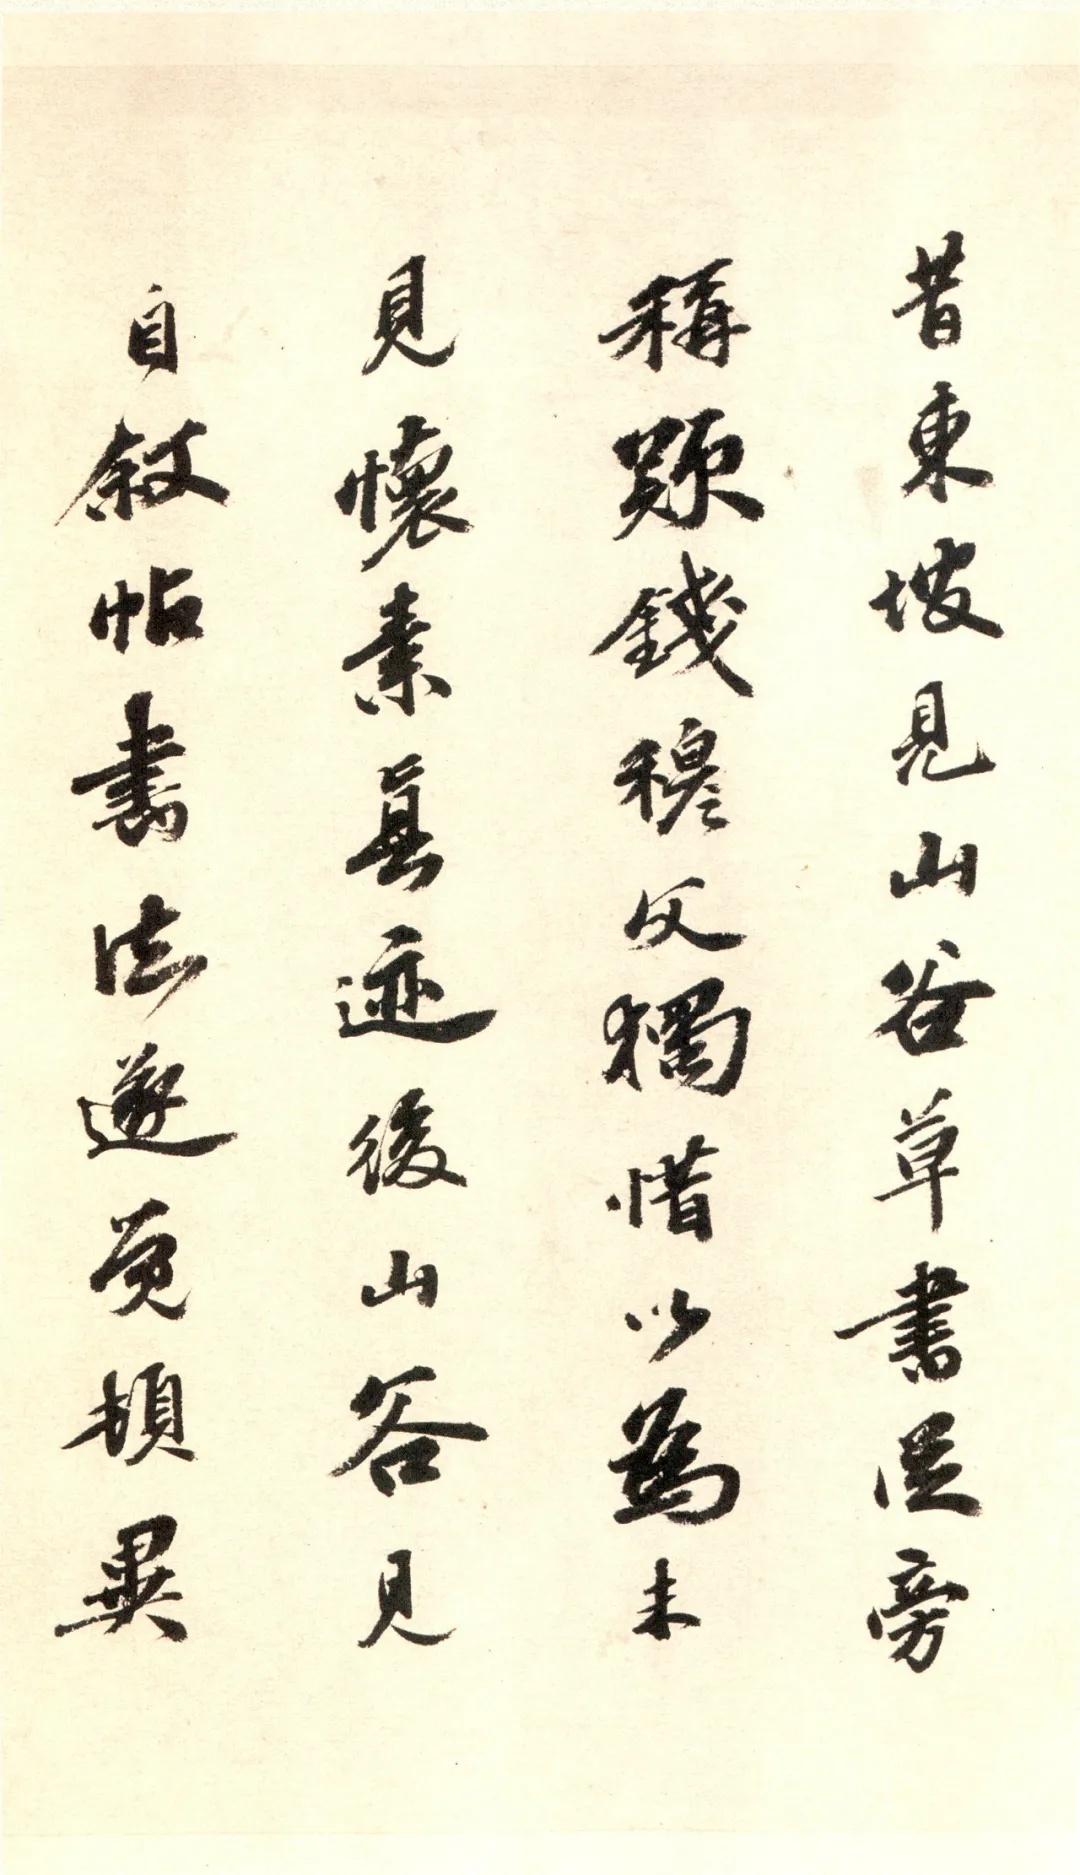 昔東坡見山谷草書從旁
稱歎錢穆父獨惜以為未
見懷素真迹後山谷見
自敘帖書法遂覺頓異